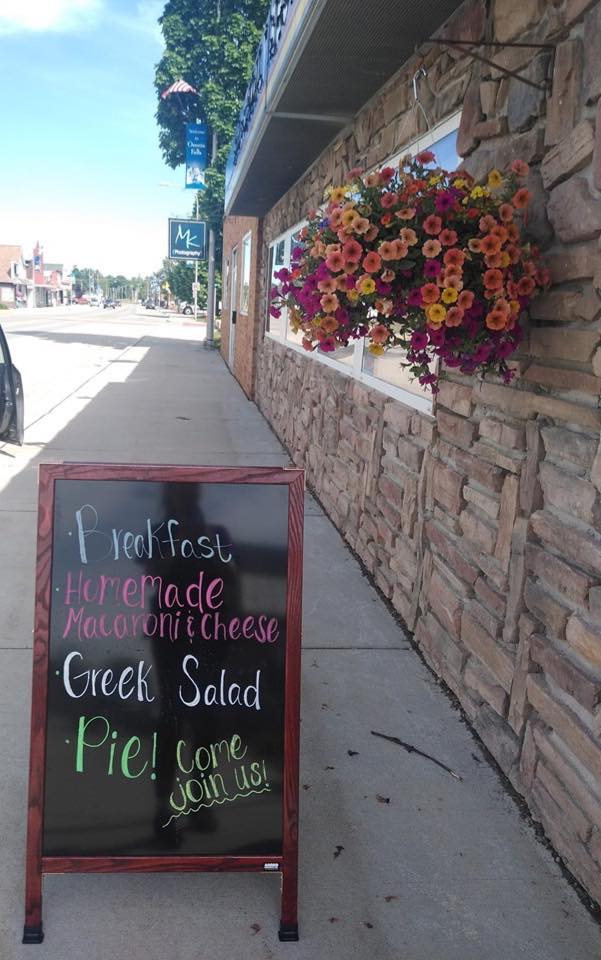 Welcome to
Oconto
Falls
MK
Photography
· Breakfast
· Homemade
Macaroni & Cheese
· Greek Salad
· Pie! Come
join us!